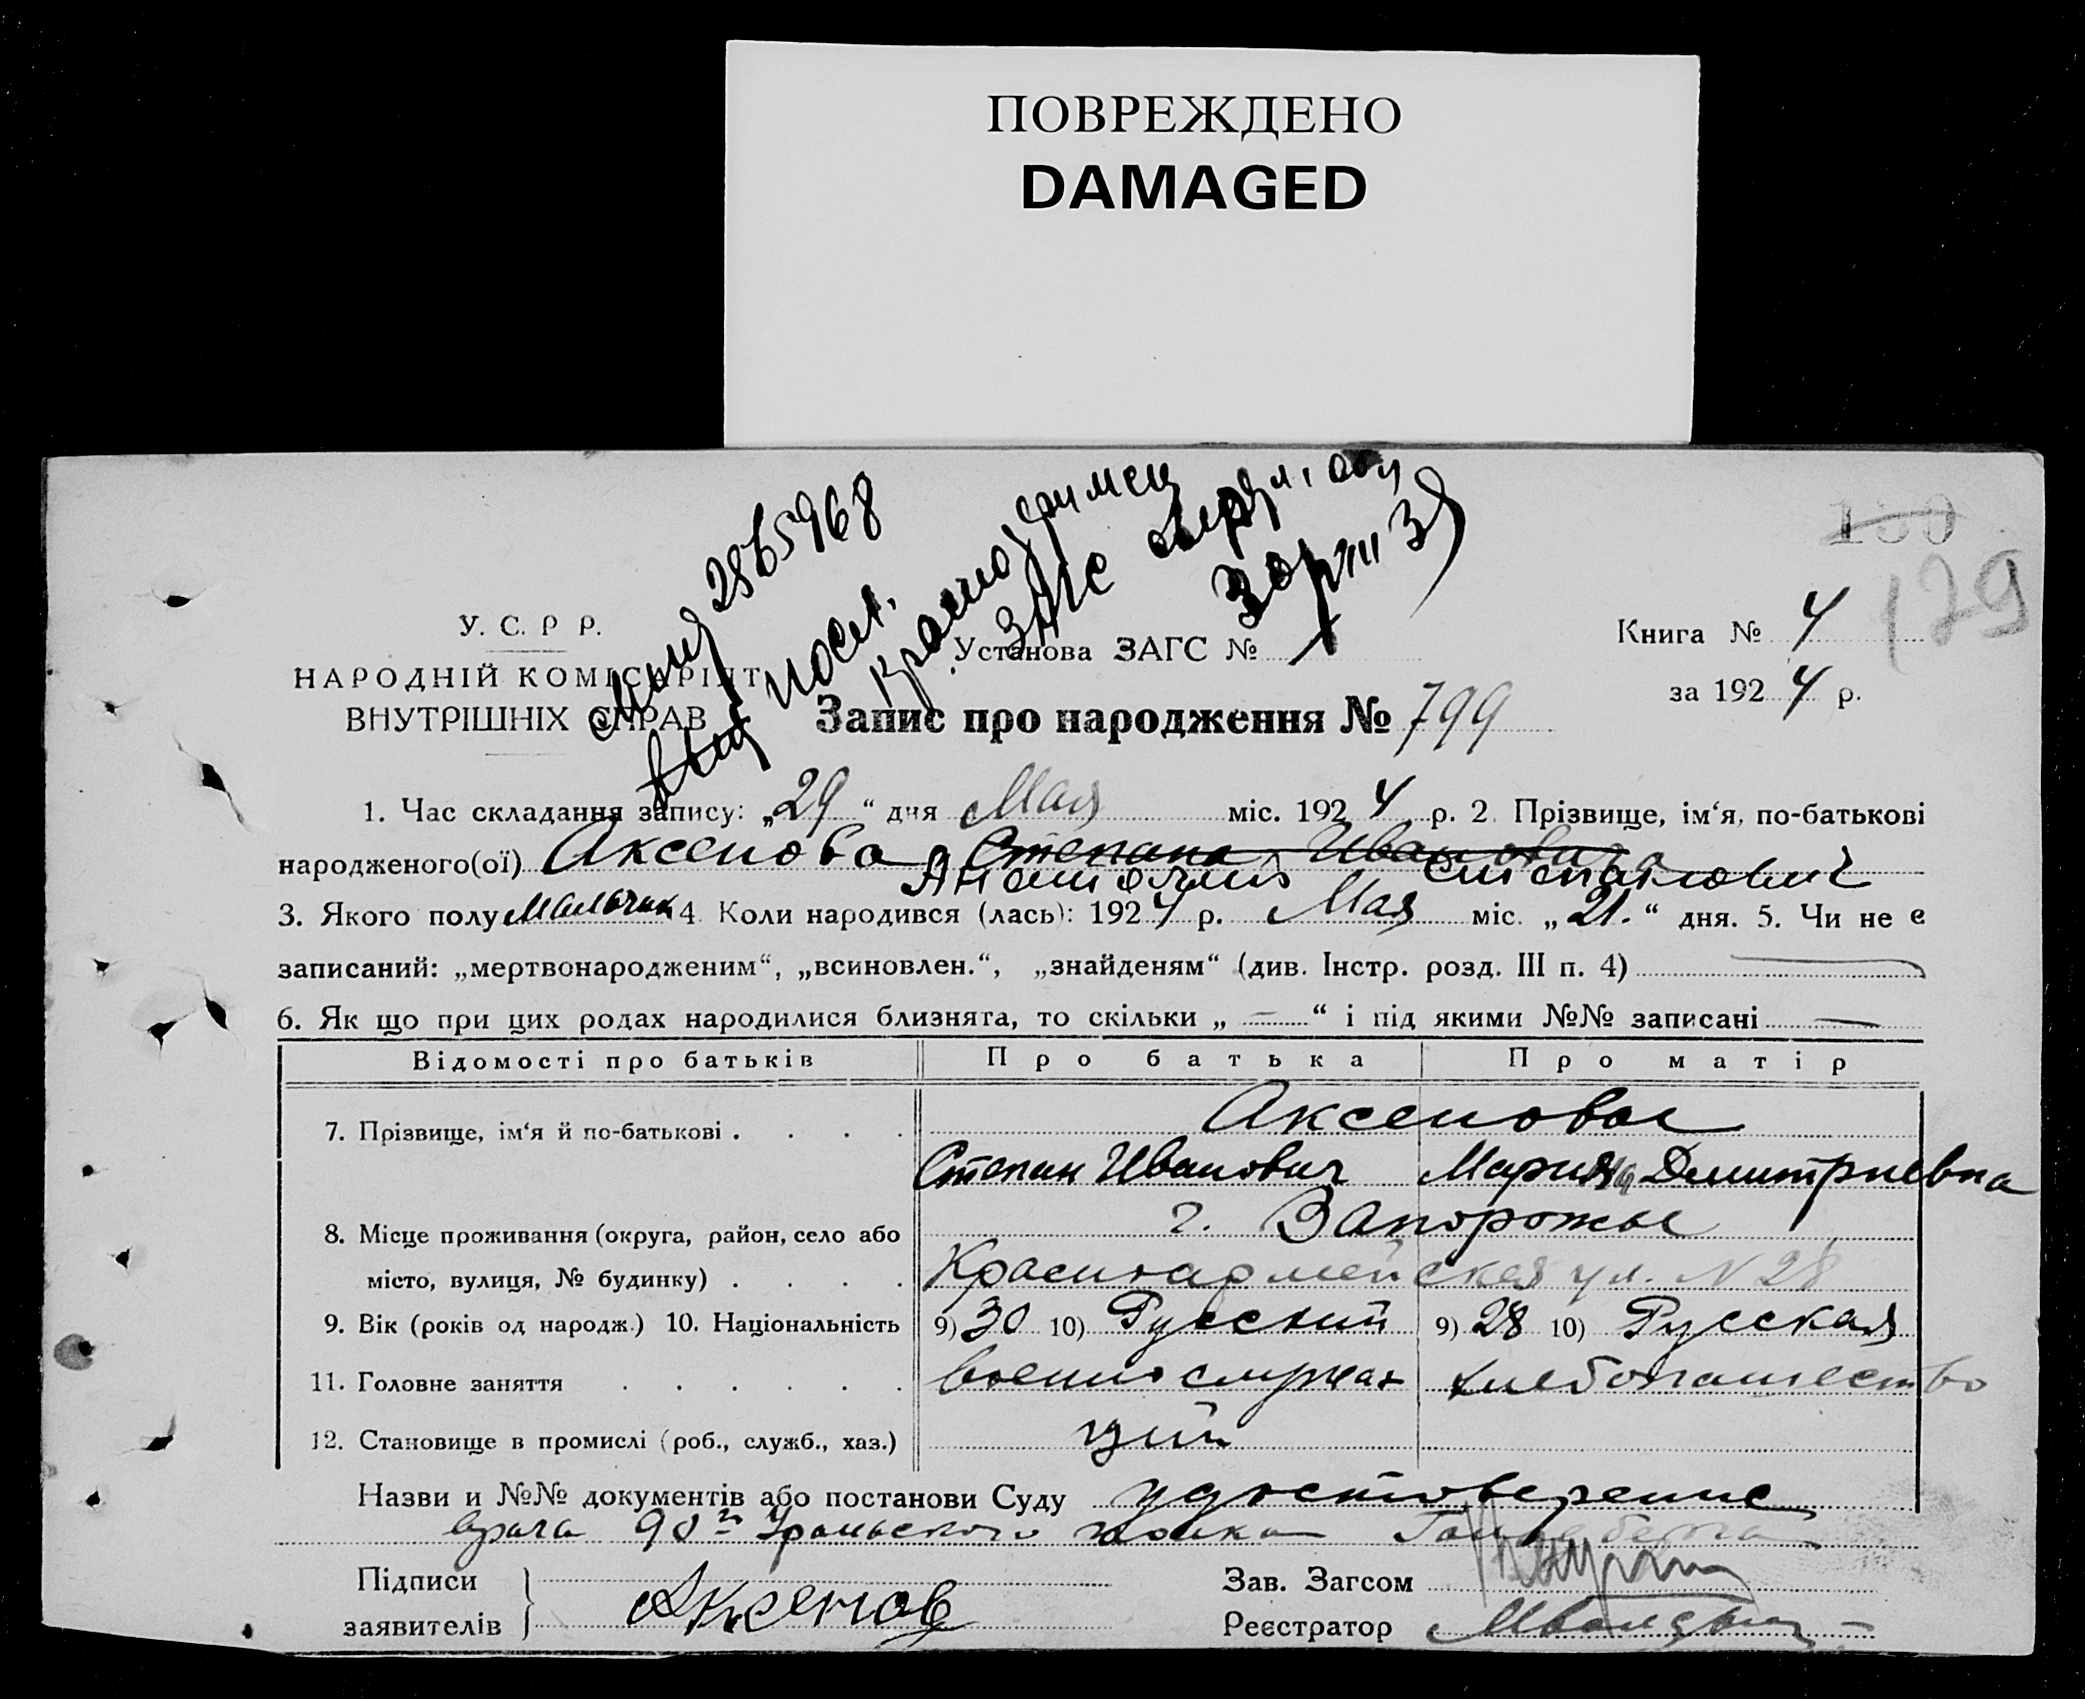 ПОВРЕЖДЕНО
DAMAGED
2865968
130
129
У. С. Р Р.
НАРОДНІЙ КОМІСАРІЯТ
ВНУТРІШНІХ СПРАВ
ЗАГС
Установа ЗАГС №
Книга № 4
за 192 4 р.
Запис про народження № 799
1. Час складання запису: „29“ дня Мая міс. 192 4 р. 2 Прізвище, ім‘я, по-батькові
народженого(ої) Аксенова Степана Ивановича
Анатолий Степанович
3. Якого полу мальчик 4. Коли народився (лась): 192 4 р. Мая міс. „21.“ дня. 5. Чи не є
записаний: „мертвонародженим“, „всиновлен.“, „знайденям“ (див. Інстр. розд. III п. 4)
6. Як що при цих родах народилися близнята, то скільки „ — “ і під якими №№ записані —
Відомості про батьків Про батька Про матір
7. Прізвище, ім‘я й по-батькові . . . . Аксеновы
Степан Иванович Мария Димитриевна
8. Місце проживання (округа, район, село або г. Запорожье
місто, вулиця, № будинку) . . . . Красноармейская ул. N 28
9. Вік (років од народж.) 10. Національність 9) 30 10) Русский 9) 28 10) Русская
11. Головне заняття . . . . . . военнослужа хлебопашество
12. Становище в промислі (роб., служб., хаз.) щий
Назви и №№ документів або постанови Суду удостоверение
врача 90го Уральского полка
Підписи Зав. Загсом
заявителів Аксенов Реєстратор